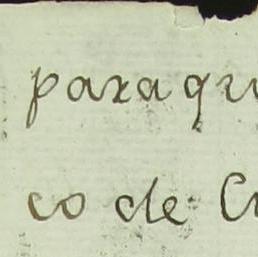 paraqu
co de C